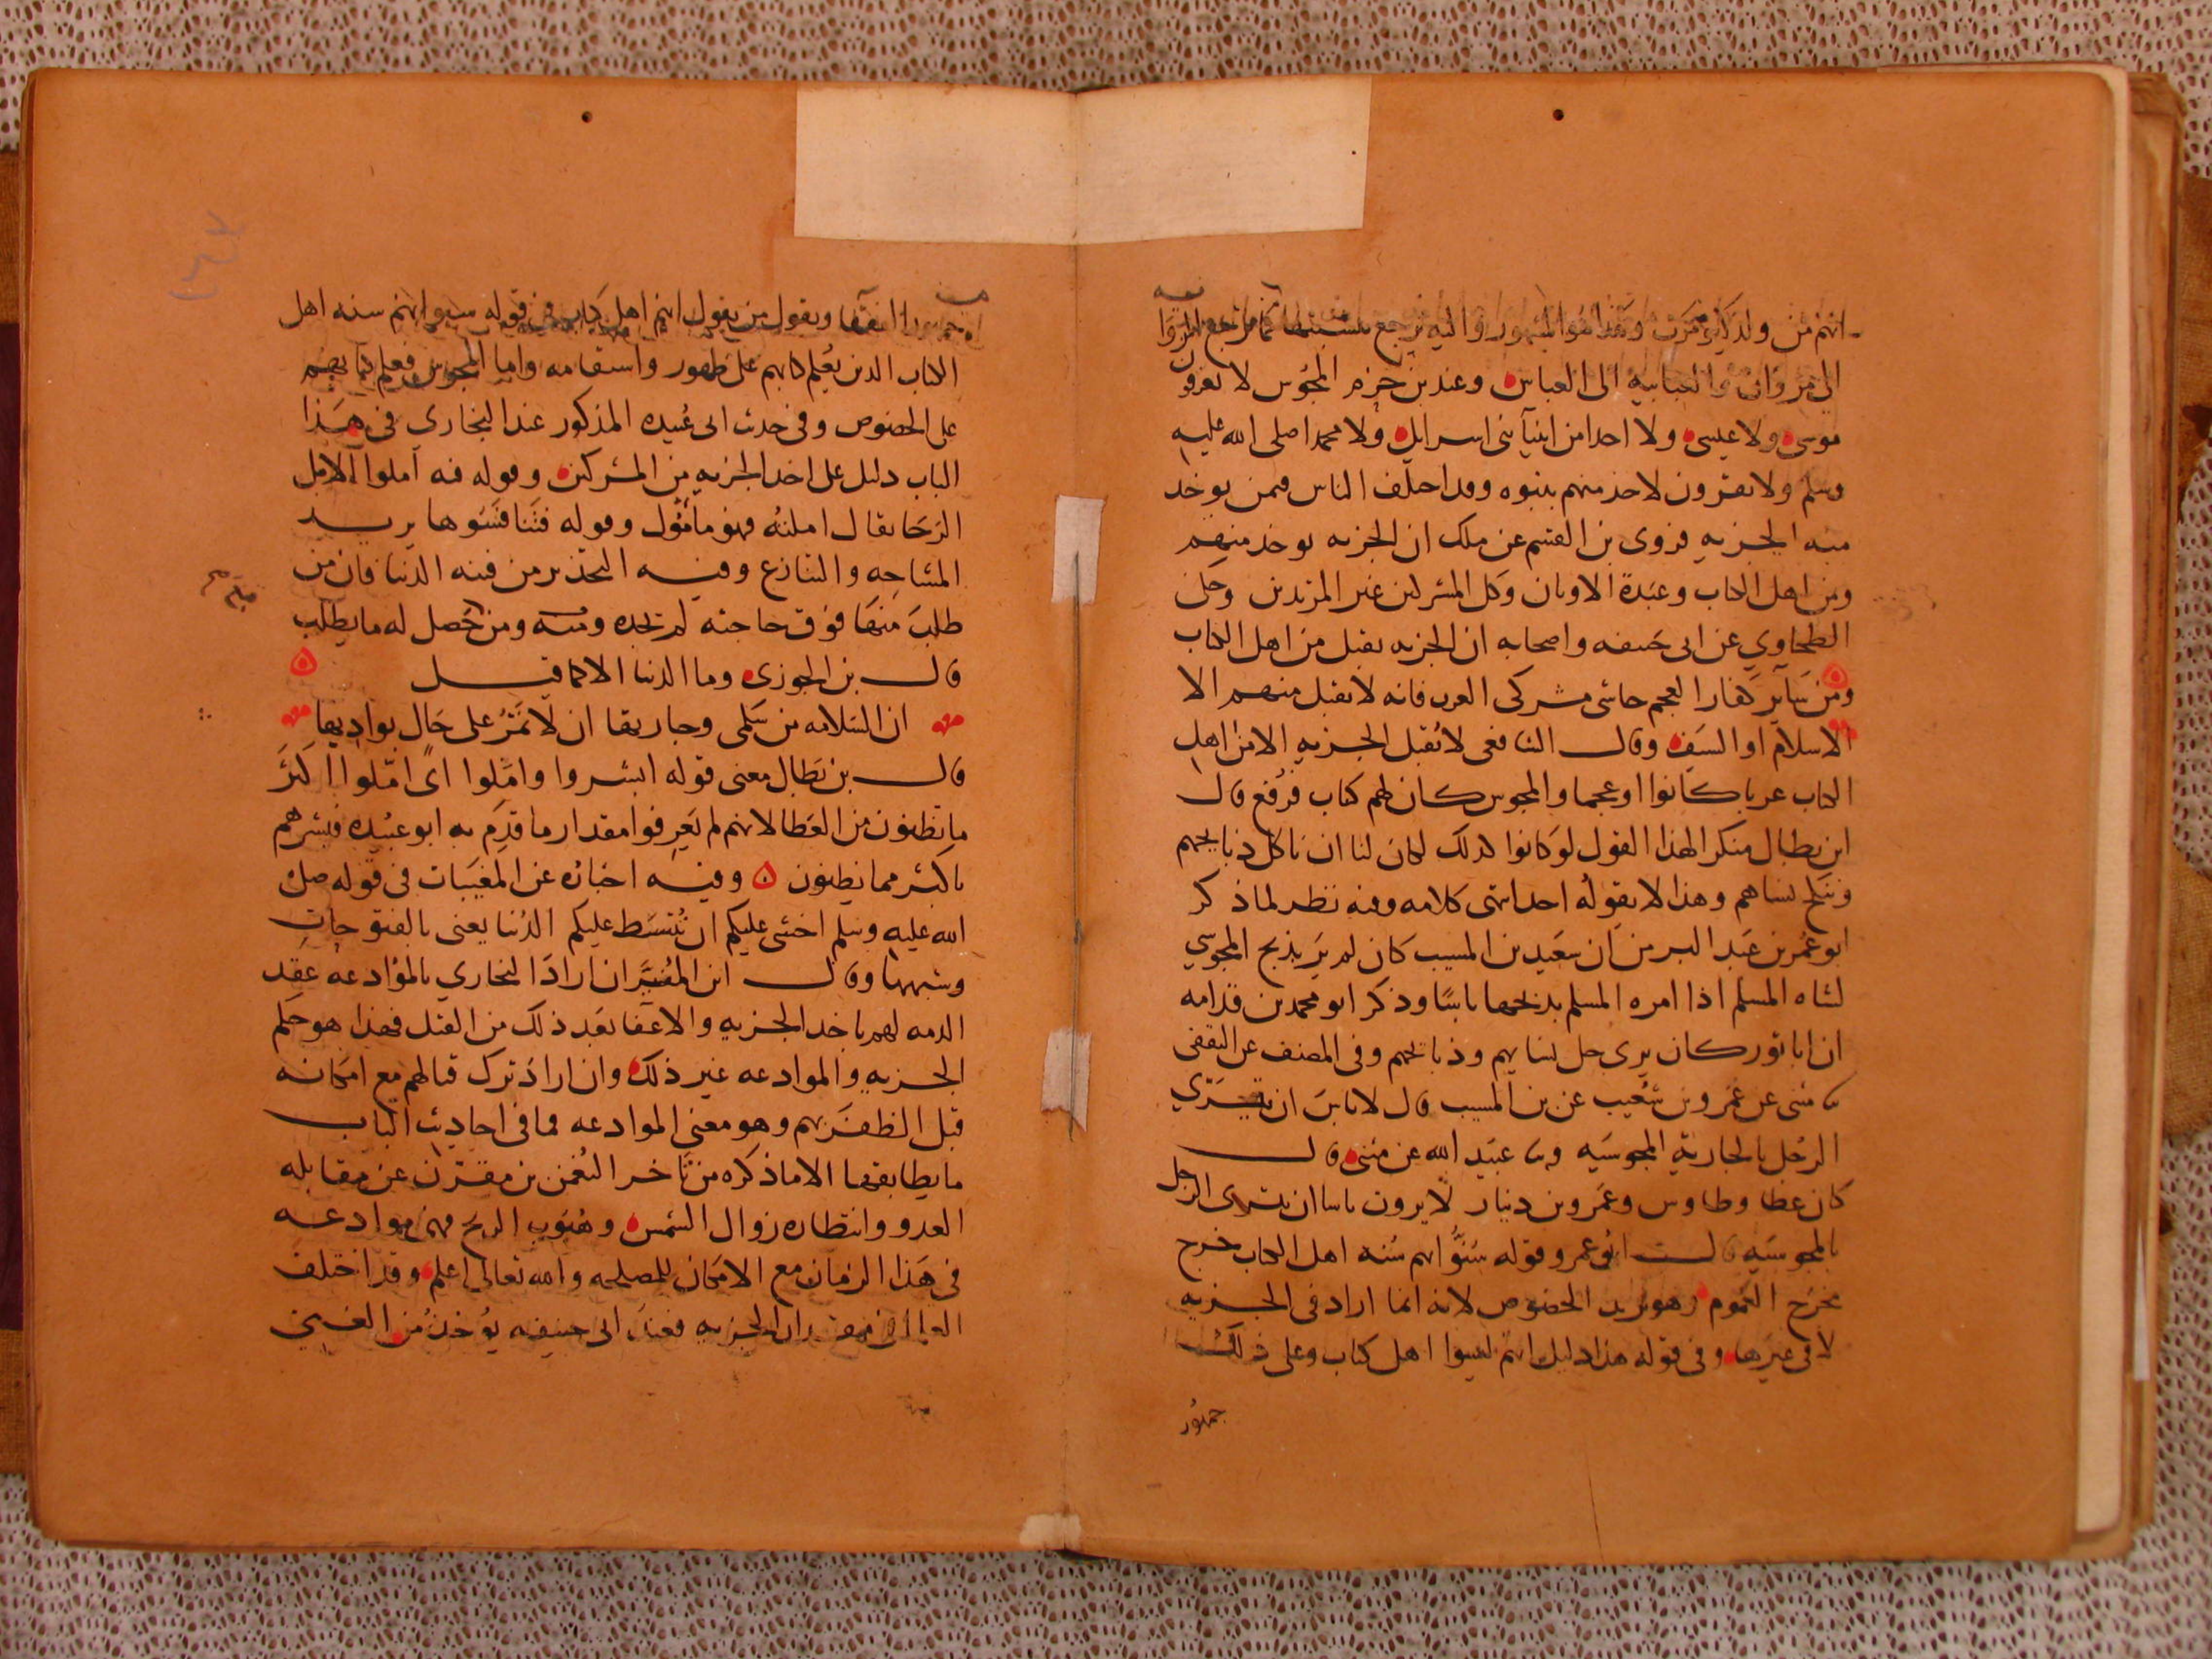 انهم من ولد كيومرت وهذا هو المشهور واليه يرجع نسبتها كما يرجع المروا
الى مروان والعباسيه الى العباس وعند بن حزم المجوس لا يعرفون
موسى ولا عيسى ولا احدا من انبيآ بنى اسرايل ولا محمدا صلى الله عليه
وسلم ولا يقرون لاحد منهم بنبوه وقد اختلف الناس فمن يوخذ
منه الجزيه فروى بن القسم عن ملك ان الجزيه يوخذ منهم
ومن اهل الكتاب وعبدة الاوثان وكل المشركين غير المرتدين وحكى
الطحاوي عن ابى حنيفه واصحابه ان الجزيه يقبل من اهل الكتاب
ومن سآير كفار العجم حاشى مشركى العرب فانه لا يقبل منهم الا
الاسلام او السيف وقال الشافعى لا تقبل الجزيه الا من اهل
الكتاب عربا كانوا او عجما والمجوس كان لهم كتاب فرفع قال
ابن بطال منكرا لهذا القول لو كانوا كذلك لكان لنا ان ناكل ذبايحهم
وننكح نساهم وهذا لا يقوله احد انتهى كلامه وفيه نظر لما ذكر
ابو عمر بن عبد البر من ان سعيد بن المسيب كان لم ير بذبح المجوسي
لشاه المسلم اذا امره المسلم بذبحها باسا وذكر ابو محمد بن قدامه
ان ابا ثور كان يرى حل نسايهم وذبايحهم وفى المصنف عن الثقفى
عن مثنى عن عمرو بن شعيب عن بن المسيب قال لا باس ان يتسرّي
الرجل بالجارية المجوسيه وعن عبيد الله عن مثنى قال
كان عطا وطاوس وعمرو بن دينار لا يرون باسا ان يتسرى الرجل
بالمجوسيه قال ابو عمر وقوله سنوا بهم سنه اهل الكتاب خرج
مخرج العموم وهو يريد الخصوص لانه انما اراد فى الجزيه
لا فى غيرها وفى قوله هذا دليل انهم ليسوا اهل كتاب وعلى ذلك
جمهور
جمهور الفقها ويقول من يقول انهم اهل كتاب فى قوله سنوا بهم سنه اهل
الكتاب الذين يعلم كتابهم على ظهور واستقامه واما المجوس فعلم كتابهم
على الخصوص وفى حديث ابى عبيده المذكور عند البخارى فى هذا
الباب دليل على اخذ الجزيه من المشركين وقوله فيه املوا الامل
الرجا يقال املته فهو مأمول وقوله فتنافسوها يريد
المشاحه والتنازع وفيه التحذير من فتنه الدنيا فان من
طلب منها فوق حاجته لم يجده ومنه ومن حصل له ما يطلب
قال بن الجوزى وما الدنيا الا كما قيل
ان السلامه من سلمى وجارتها ان لا تمر على حال بواديها
قال بن بطال معنى قوله ابشروا واملوا اى املوا اكثر
ما تطلبون من العطا لانهم لم يعرفوا مقدار ما قدم به ابو عبيده فبشرهم
باكثر مما يظنون وفيه اخباره عن المغيبات فى قوله صلى
الله عليه وسلم اخشى عليكم ان تبسط عليكم الدنيا يعنى بالفتوحات
وشبهها وقال ابن المنير ان اراد البخاري بالموادعه عقد
الذمه لهم باخذ الجزيه والاعفا بعد ذلك من القتل فهذا هو حكم
الجزيه والموادعه غير ذلك وان اراد ترك قتالهم مع امكانه
قبل الظفر بهم وهو معنى الموادعه فما فى احاديث الباب
ما يطابقها الا ما ذكره من تاخر النعمن بن مقرن عن مقابله
العدو وانتظاره زوال الشمس وهبوب الريح فهى موادعه
فى هذا الزمان مع الامكان للمصلحه والله تعالى اعلم وقد اختلف
العلما فى مقدار الجزيه فعند ابى حنيفه يوخذ من الغنى